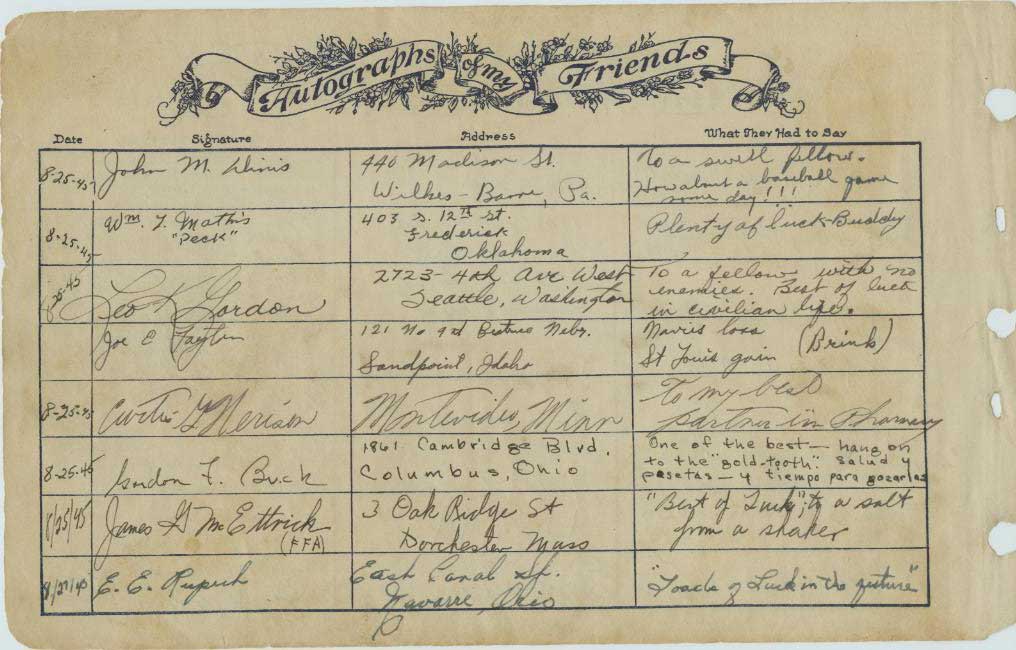 Autographs of my Friends
Date Signature Address What They Had to Say
8-25-45 John M. 440 Madison St. To a swell fellow.
Wilkes-Barre, Pa. How about a baseball game
some day!!!
8-25-45 Wm. T. Mathis 403 S. 12th St. Plenty of luck-Buddy
"Peck" Frederick
Oklahoma
8-25-45 Leo K Gordon 2723-4th Ave West To a fellow with no
Seattle, Washington enemies. Best of luck
in civilian life.
Joe E 121 No Nebr. loss
Sandpoint, Idaho St Louis gain (Brink)
8-25-45 Curtis G Montevideo, Minn To my best
partner in Pharmacy
8-25-45 Gordon F. Buck 1861 Cambridge Blvd. One of the best- hang on
Columbus, Ohio to the "gold-tooth". Salud y
pesetas-y tiempo para gozarlas
8/25/45 James G McEttrick 3 Oak Ridge St "Best of Luck", to a salt
(FFA) Dorchester Mass from a shaker
E. E. East Canal St. "Loads of Luck in the future"
Navarre, Ohio